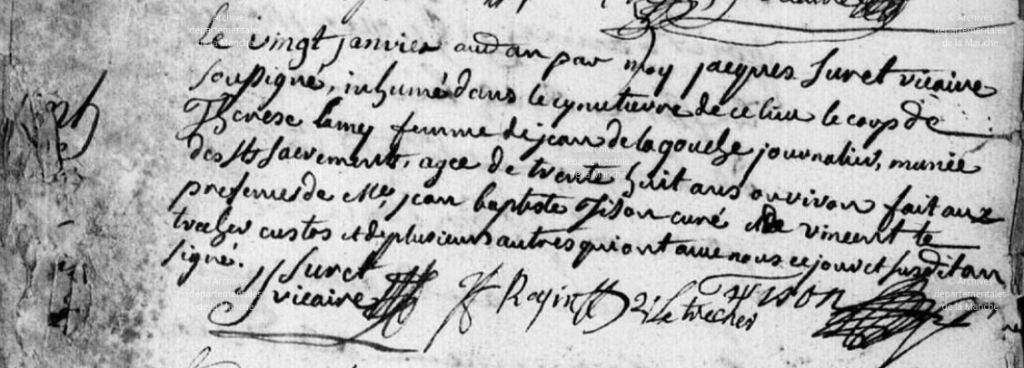 Le vingt janvier audan par moy jacques Suret vicaire
soussigné, inhumé dans le cymetierre de ce lieu le corps de
Therese lamy femme de jean de la gouche journalier, munie
des Sts Sacrements, agee de trente huit ans onviron fait aux
presences de Me, jean baptiste Tison curé de vincent le
trecher custos et de plusieurs autres qui ont avec nous ce jour et susdit an
signé.
Suret
vicaire
Le trecher
Tison